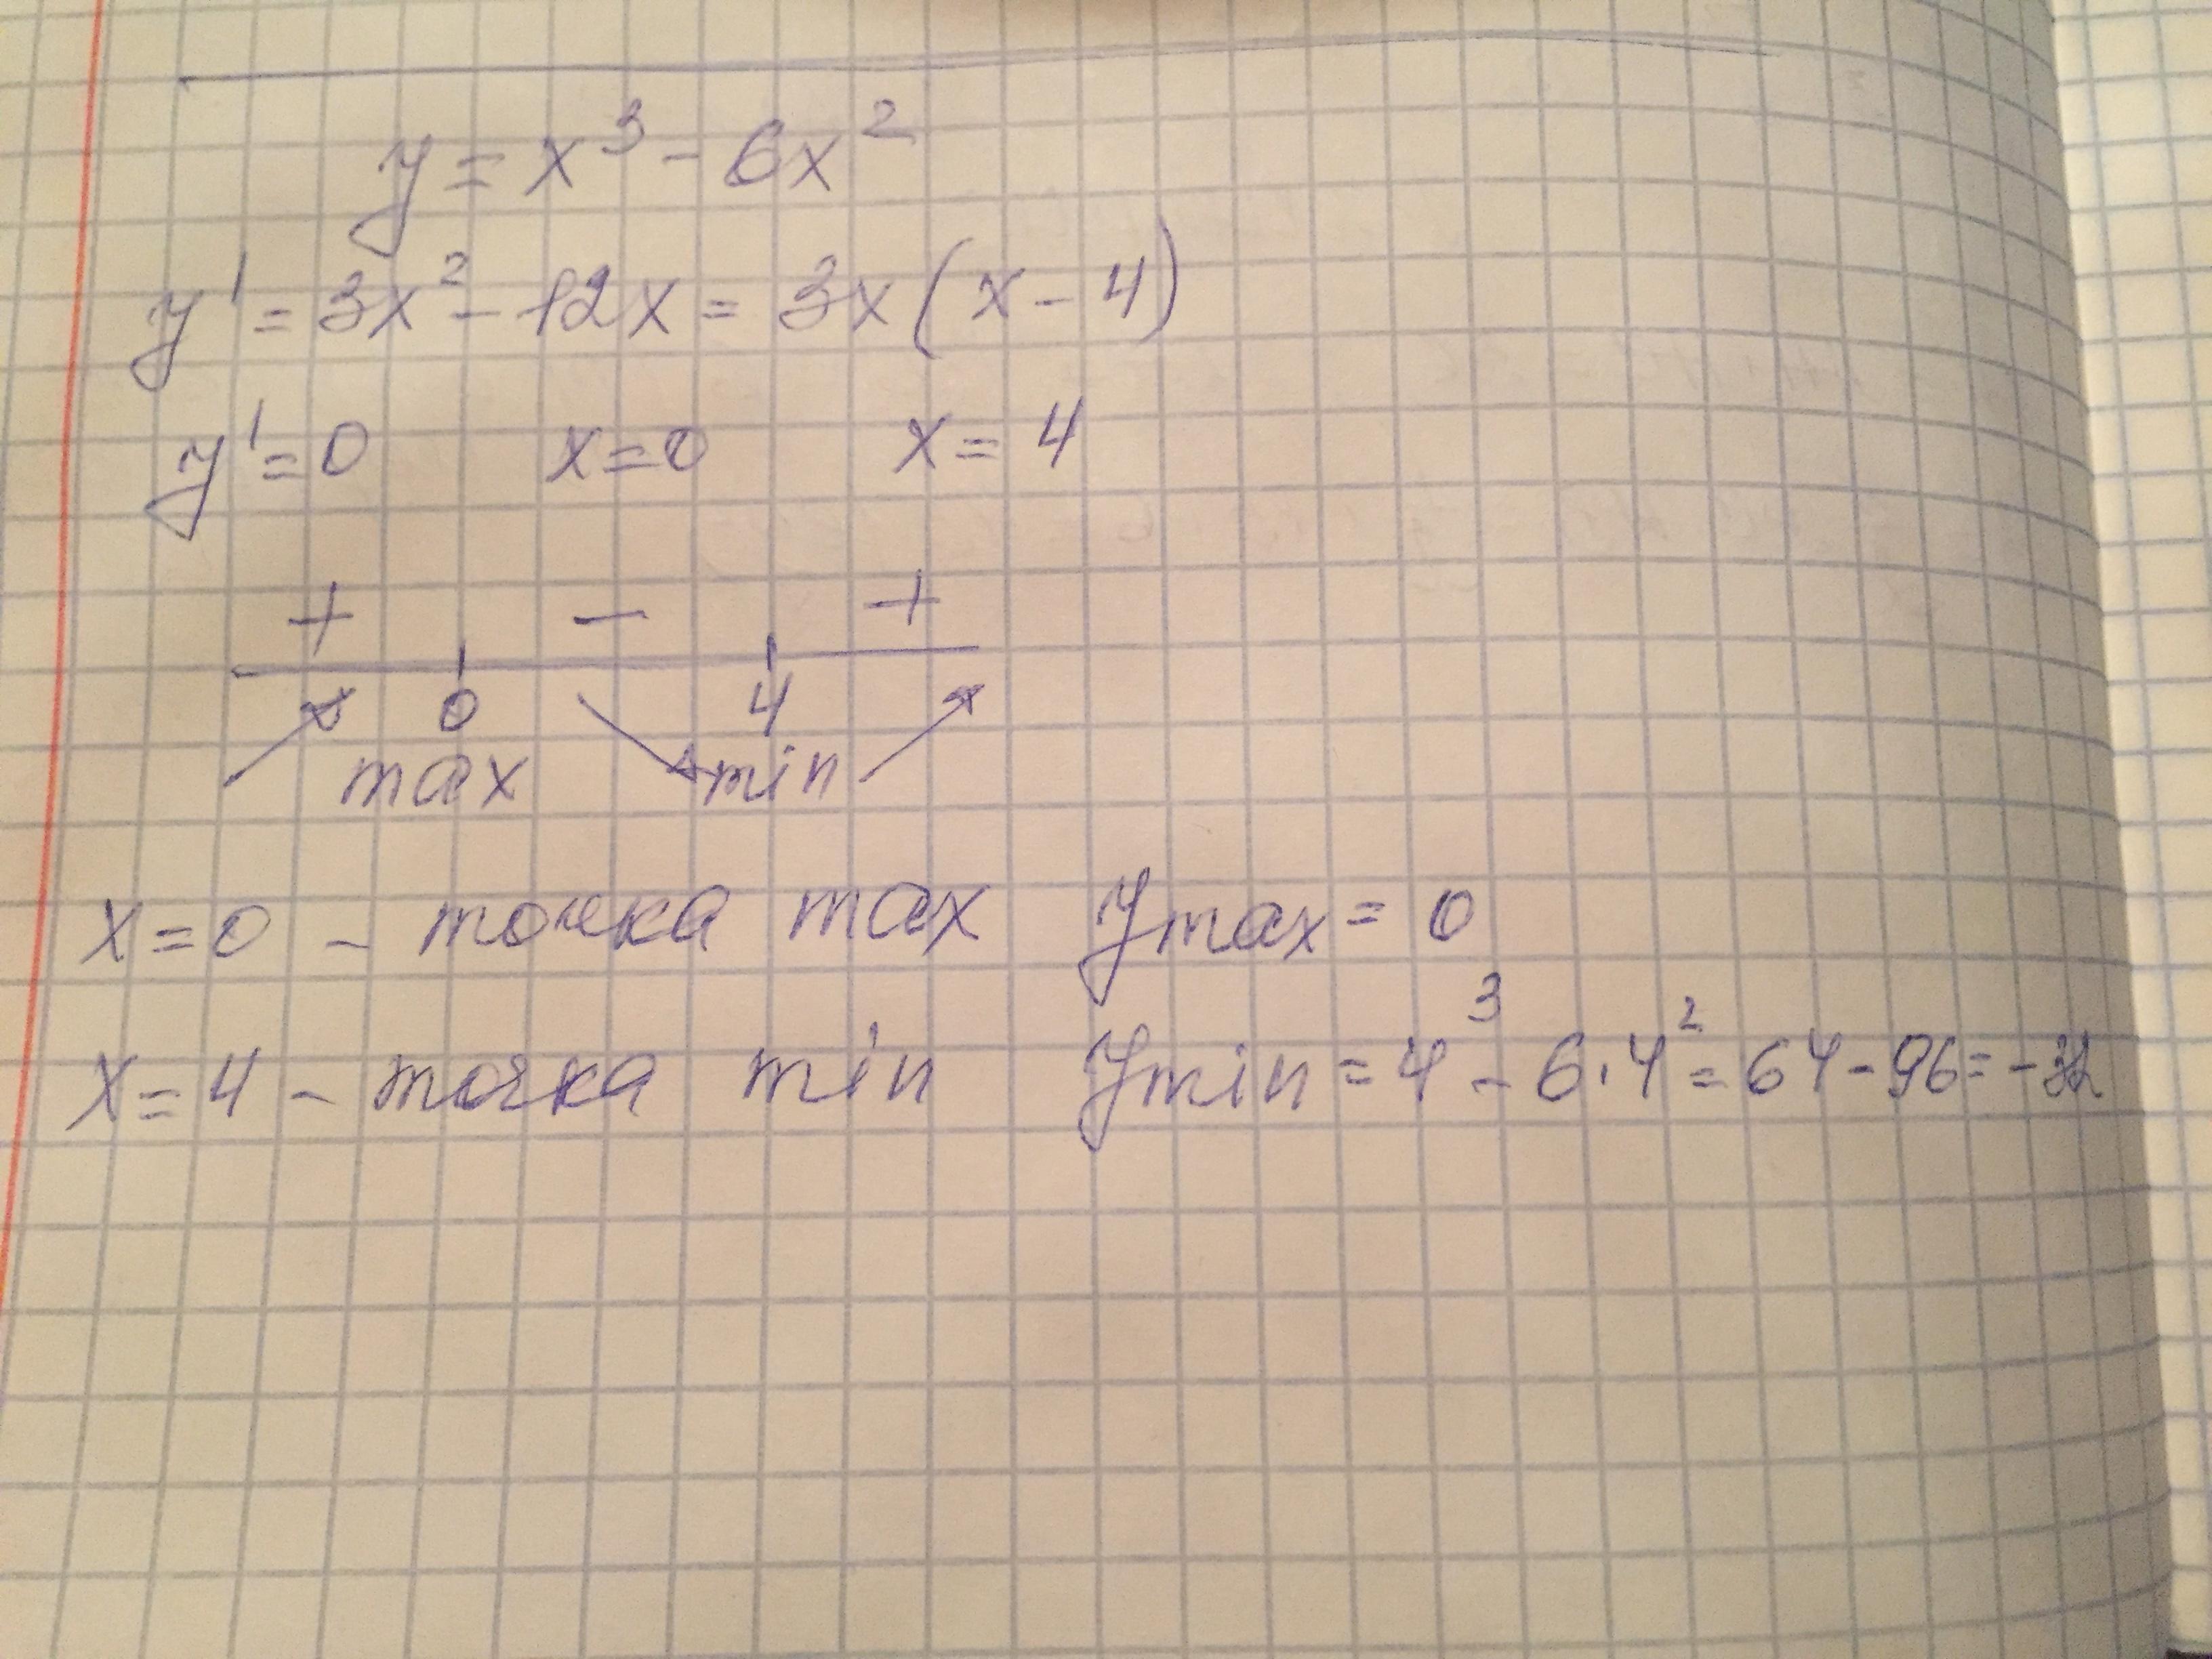 y = x³ - 6x²
y' = 3x² - 12x = 3x(x - 4)
y' = 0 x = 0 x = 4
+ - +
0 4
max min
x = 0 - точка max y max = 0
x = 4 - точка min y min = 4³ - 6·4² = 64 - 96 = -32